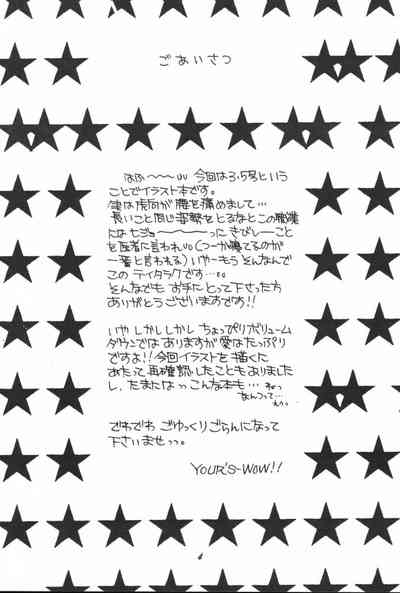 ごあいさつ
はふ〜〜〜 今回は3.5号という
ことでイラスト本です。
実は虎向が腰を痛めまして…
長いこと同じ姿勢をとるなとこの職業
にはぜつ〜〜〜ったいきびしーことを
を医者に言われ(つーか寝てるのが
一番と言われる)いやーもうそんなんで
このテイタラクです…。
そんなでもお手にとって下さった方
ありがとうございますです!!
いやしかししかしちょっぴりボリューム
ダウンではありますが愛はたっぷり
ですよ!!今回イラストを描くに
あたって再確認したこともありました
し、たまにはっこんな本も…
なんつって…
でわでわごゆっくりごらんになって
下さいませっっ。
YOUR'S-WOW!!